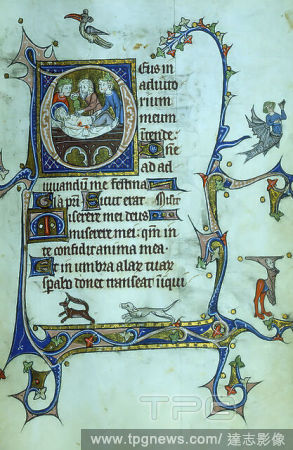 Deus in
adiuto
rium
meum
tende: Dne
ad ad
iuuandū me festina
Gła pri Sicut erat
Miserere mei deus
miserere mei: qm̄ in
te confidit anima mea.
Et in umbra alar tuar
spabo donec transeat iniqui
TPG
www.tpgnews.com / 達志影像